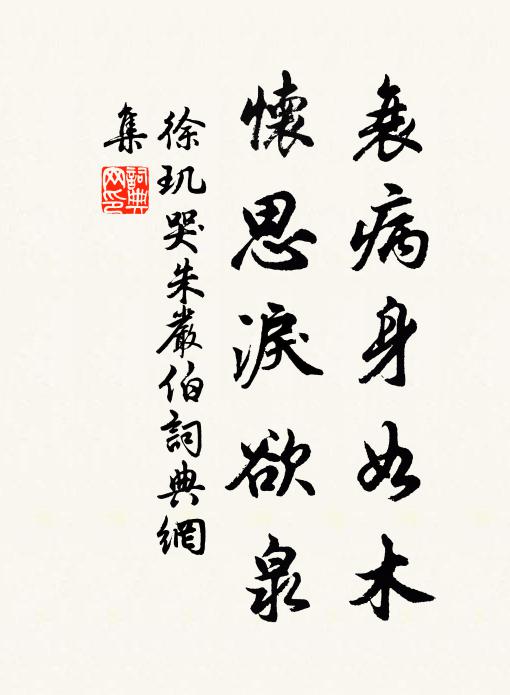 衰病身如木
懷思淚欲泉
徐玑哭朱嚴伯詞典網
集
詞典
网印